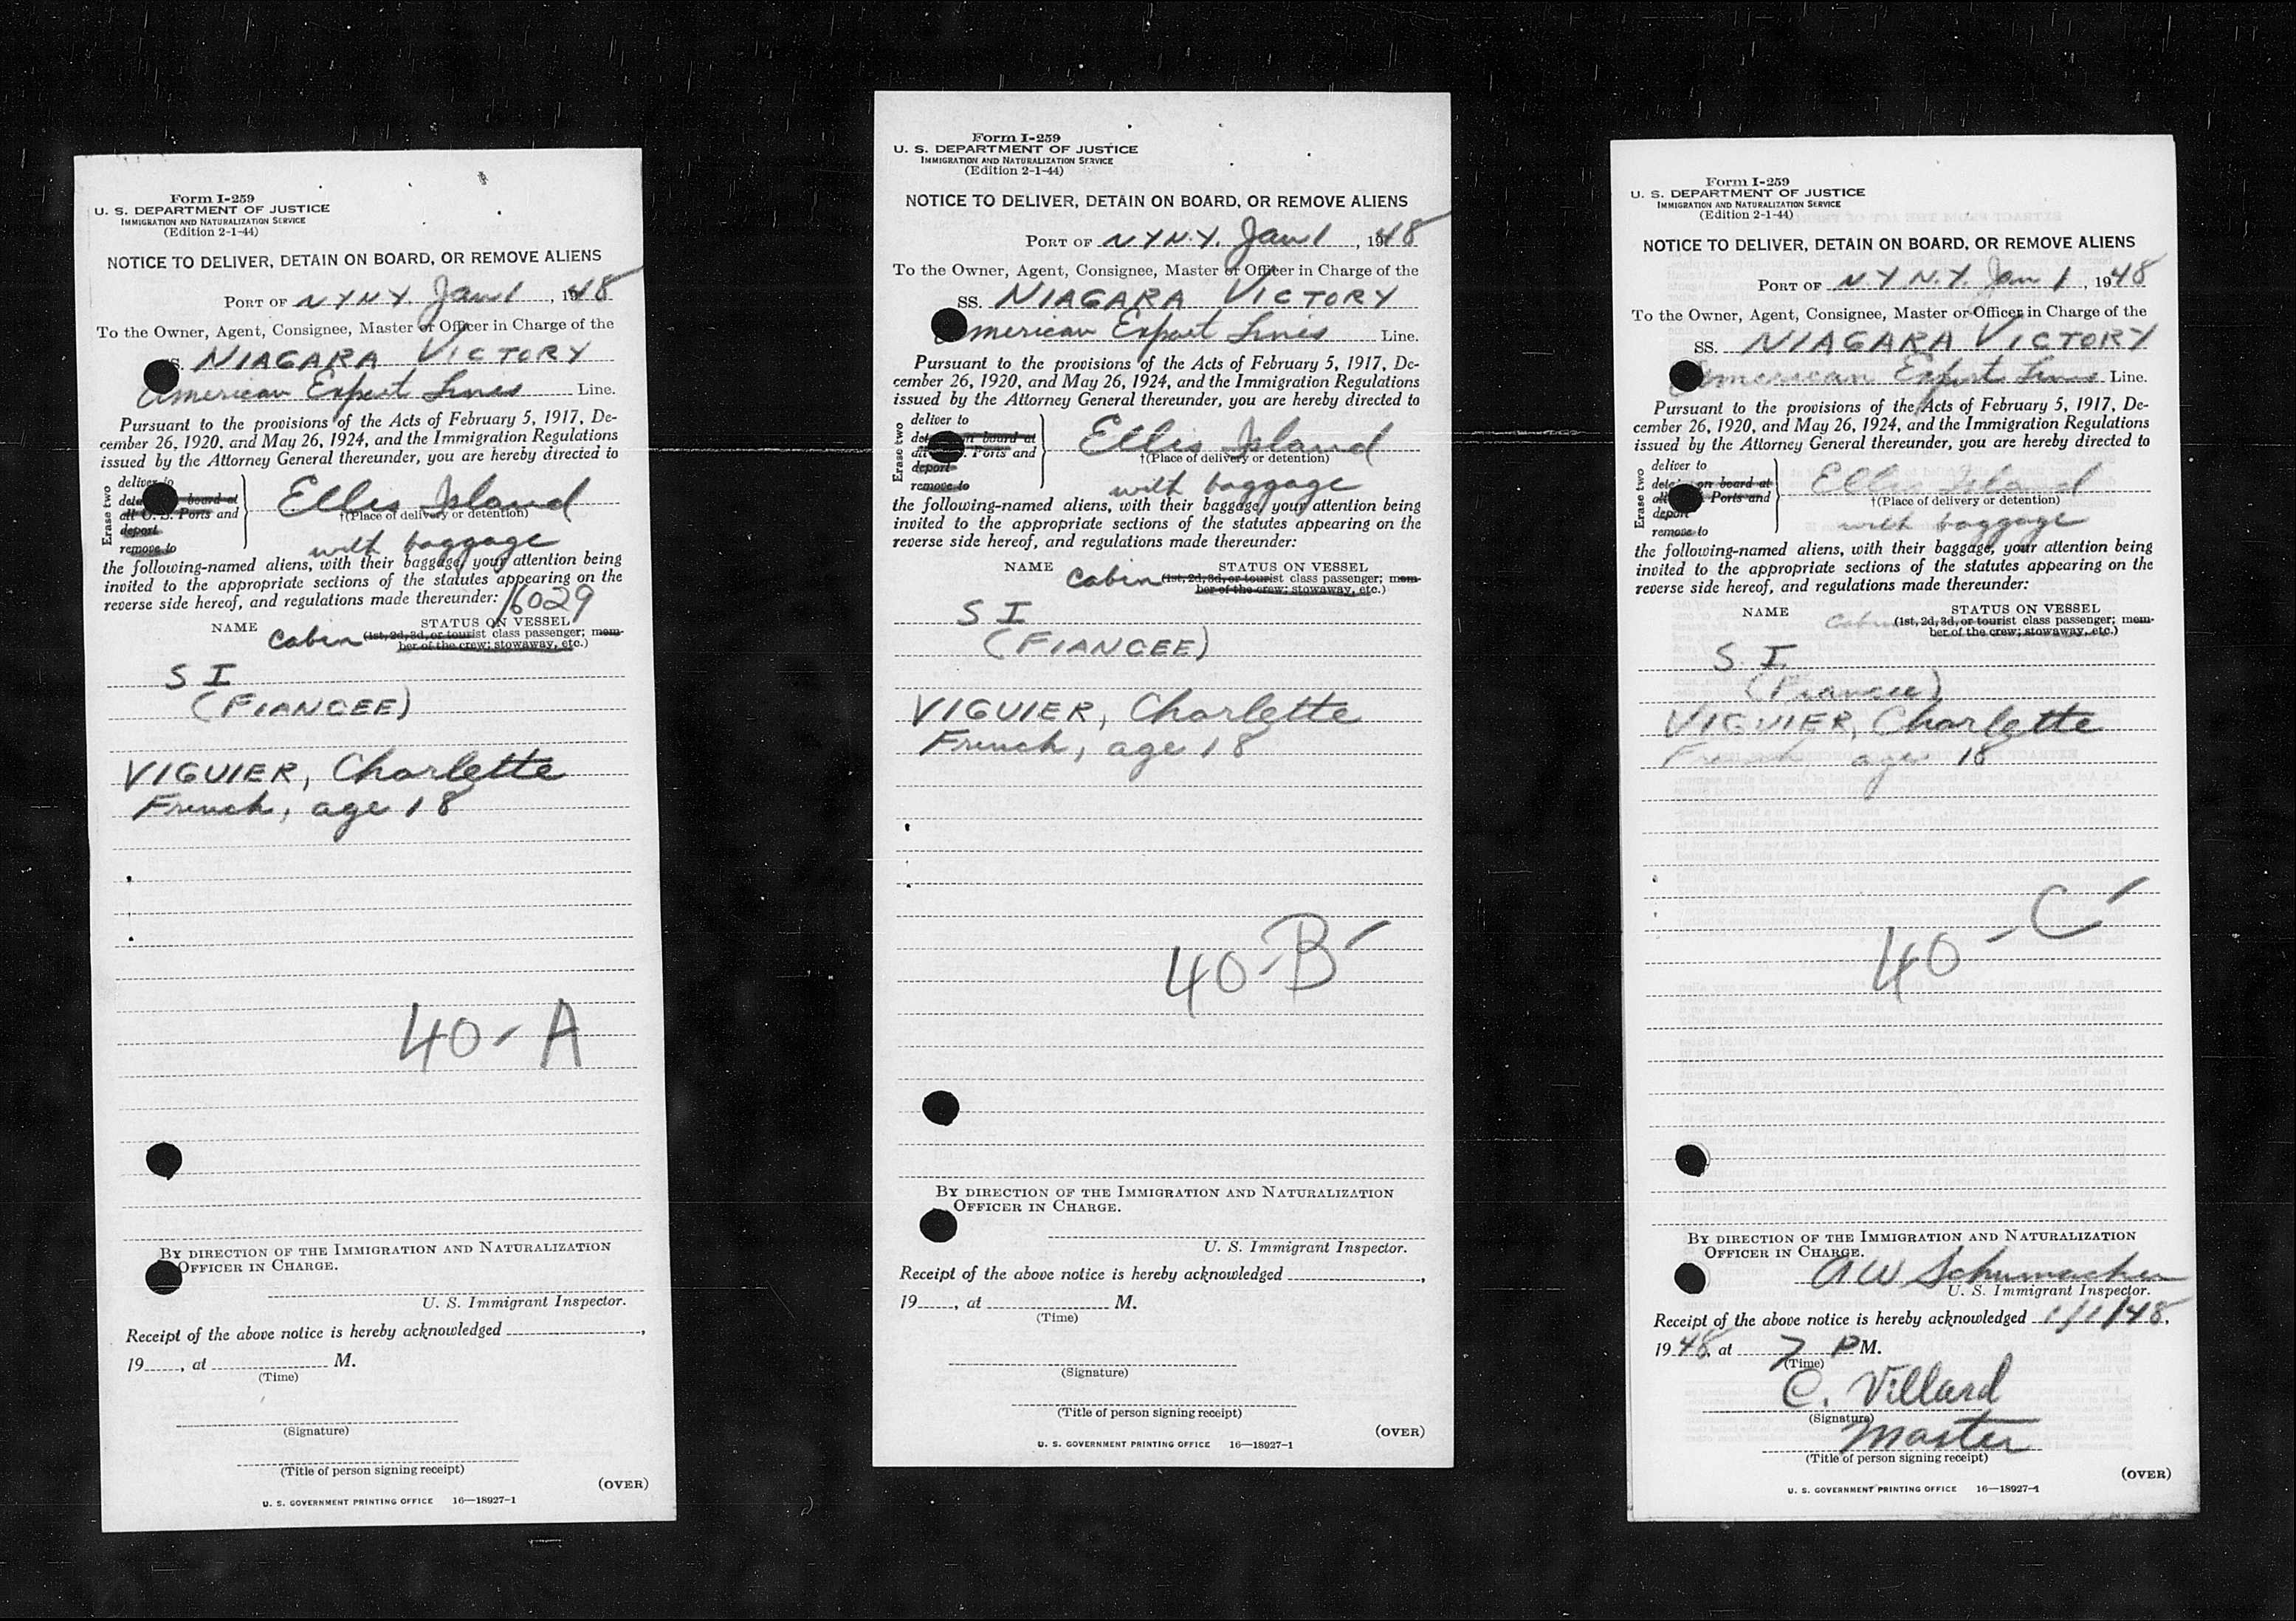 Form I-259
U. S. DEPARTMENT OF JUSTICE
IMMIGRATION AND NATURALIZATION SERVICE
(Edition 2-1-44)
NOTICE TO DELIVER, DETAIN ON BOARD, OR REMOVE ALIENS
PORT OF NYNY. Jan 1, 1948
To the Owner, Agent, Consignee, Master or Officer in Charge of the
S. NIAGARA VICTORY
American Export Lines Line.
Pursuant to the provisions of the Acts of February 5, 1917, De-
cember 26, 1920, and May 26, 1924, and the Immigration Regulations
issued by the Attorney General thereunder, you are hereby directed to
Erase two
deliver to
board at
all U. S. Ports and
deport
remove to
Ellis Island
†(Place of delivery or detention)
with baggage
the following-named aliens, with their baggage, your attention being
invited to the appropriate sections of the statutes appearing on the
reverse side hereof, and regulations made thereunder: 16029
NAME Cabin STATUS ON VESSEL
(1st, 2d, 3d, or tourist class passenger; mem-
ber of the crew; stowaway, etc.)
S I
(FIANCEE)
VIGUIER, Charlette
French, age 18
40-A
BY DIRECTION OF THE IMMIGRATION AND NATURALIZATION
OFFICER IN CHARGE.
U. S. Immigrant Inspector.
Receipt of the above notice is hereby acknowledged ,
19 , at M.
(Time)
(Signature)
(Title of person signing receipt)
(OVER)
U. S. GOVERNMENT PRINTING OFFICE 16—18927-1
Form I-259
U. S. DEPARTMENT OF JUSTICE
IMMIGRATION AND NATURALIZATION SERVICE
(Edition 2-1-44)
NOTICE TO DELIVER, DETAIN ON BOARD, OR REMOVE ALIENS
PORT OF NYN.Y. Jan 1, 1948
To the Owner, Agent, Consignee, Master or Officer in Charge of the
SS. NIAGARA VICTORY
merican Export Lines Line.
Pursuant to the provisions of the Acts of February 5, 1917, De-
cember 26, 1920, and May 26, 1924, and the Immigration Regulations
issued by the Attorney General thereunder, you are hereby directed to
Erase two
deliver to
on board at
Ports and
deport
remove to
Ellis Island
†(Place of delivery or detention)
with baggage
the following-named aliens, with their baggage, your attention being
invited to the appropriate sections of the statutes appearing on the
reverse side hereof, and regulations made thereunder:
NAME Cabin STATUS ON VESSEL
(1st, 2d, 3d, or tourist class passenger; mem-
ber of the crew; stowaway, etc.)
S I
(FIANCEE)
VIGUIER, Charlette
French, age 18
40-B
BY DIRECTION OF THE IMMIGRATION AND NATURALIZATION
OFFICER IN CHARGE.
U. S. Immigrant Inspector.
Receipt of the above notice is hereby acknowledged ,
19 , at M.
(Time)
(Signature)
(Title of person signing receipt)
(OVER)
U. S. GOVERNMENT PRINTING OFFICE 16—18927-1
Form I-259
U. S. DEPARTMENT OF JUSTICE
IMMIGRATION AND NATURALIZATION SERVICE
(Edition 2-1-44)
NOTICE TO DELIVER, DETAIN ON BOARD, OR REMOVE ALIENS
PORT OF N.Y N.Y. Jan 1, 1948
To the Owner, Agent, Consignee, Master or Officer in Charge of the
SS. NIAGARA VICTORY
American Export Lines Line.
Pursuant to the provisions of the Acts of February 5, 1917, De-
cember 26, 1920, and May 26, 1924, and the Immigration Regulations
issued by the Attorney General thereunder, you are hereby directed to
Erase two
deliver to
on board at
Ports and
deport
remove to
Ellis Island
†(Place of delivery or detention)
with baggage
the following-named aliens, with their baggage, your attention being
invited to the appropriate sections of the statutes appearing on the
reverse side hereof, and regulations made thereunder:
NAME Cabin STATUS ON VESSEL
(1st, 2d, 3d, or tourist class passenger; mem-
ber of the crew; stowaway, etc.)
S. I.
(Fiancee)
VIGUIER, Charlette
French age 18
40-C
BY DIRECTION OF THE IMMIGRATION AND NATURALIZATION
OFFICER IN CHARGE.
A W Schumacher
U. S. Immigrant Inspector.
Receipt of the above notice is hereby acknowledged 1/1/48,
1948, at 7 P M.
(Time)
C. Villard
(Signature)
Master
(Title of person signing receipt)
(OVER)
U. S. GOVERNMENT PRINTING OFFICE 16—18927-1